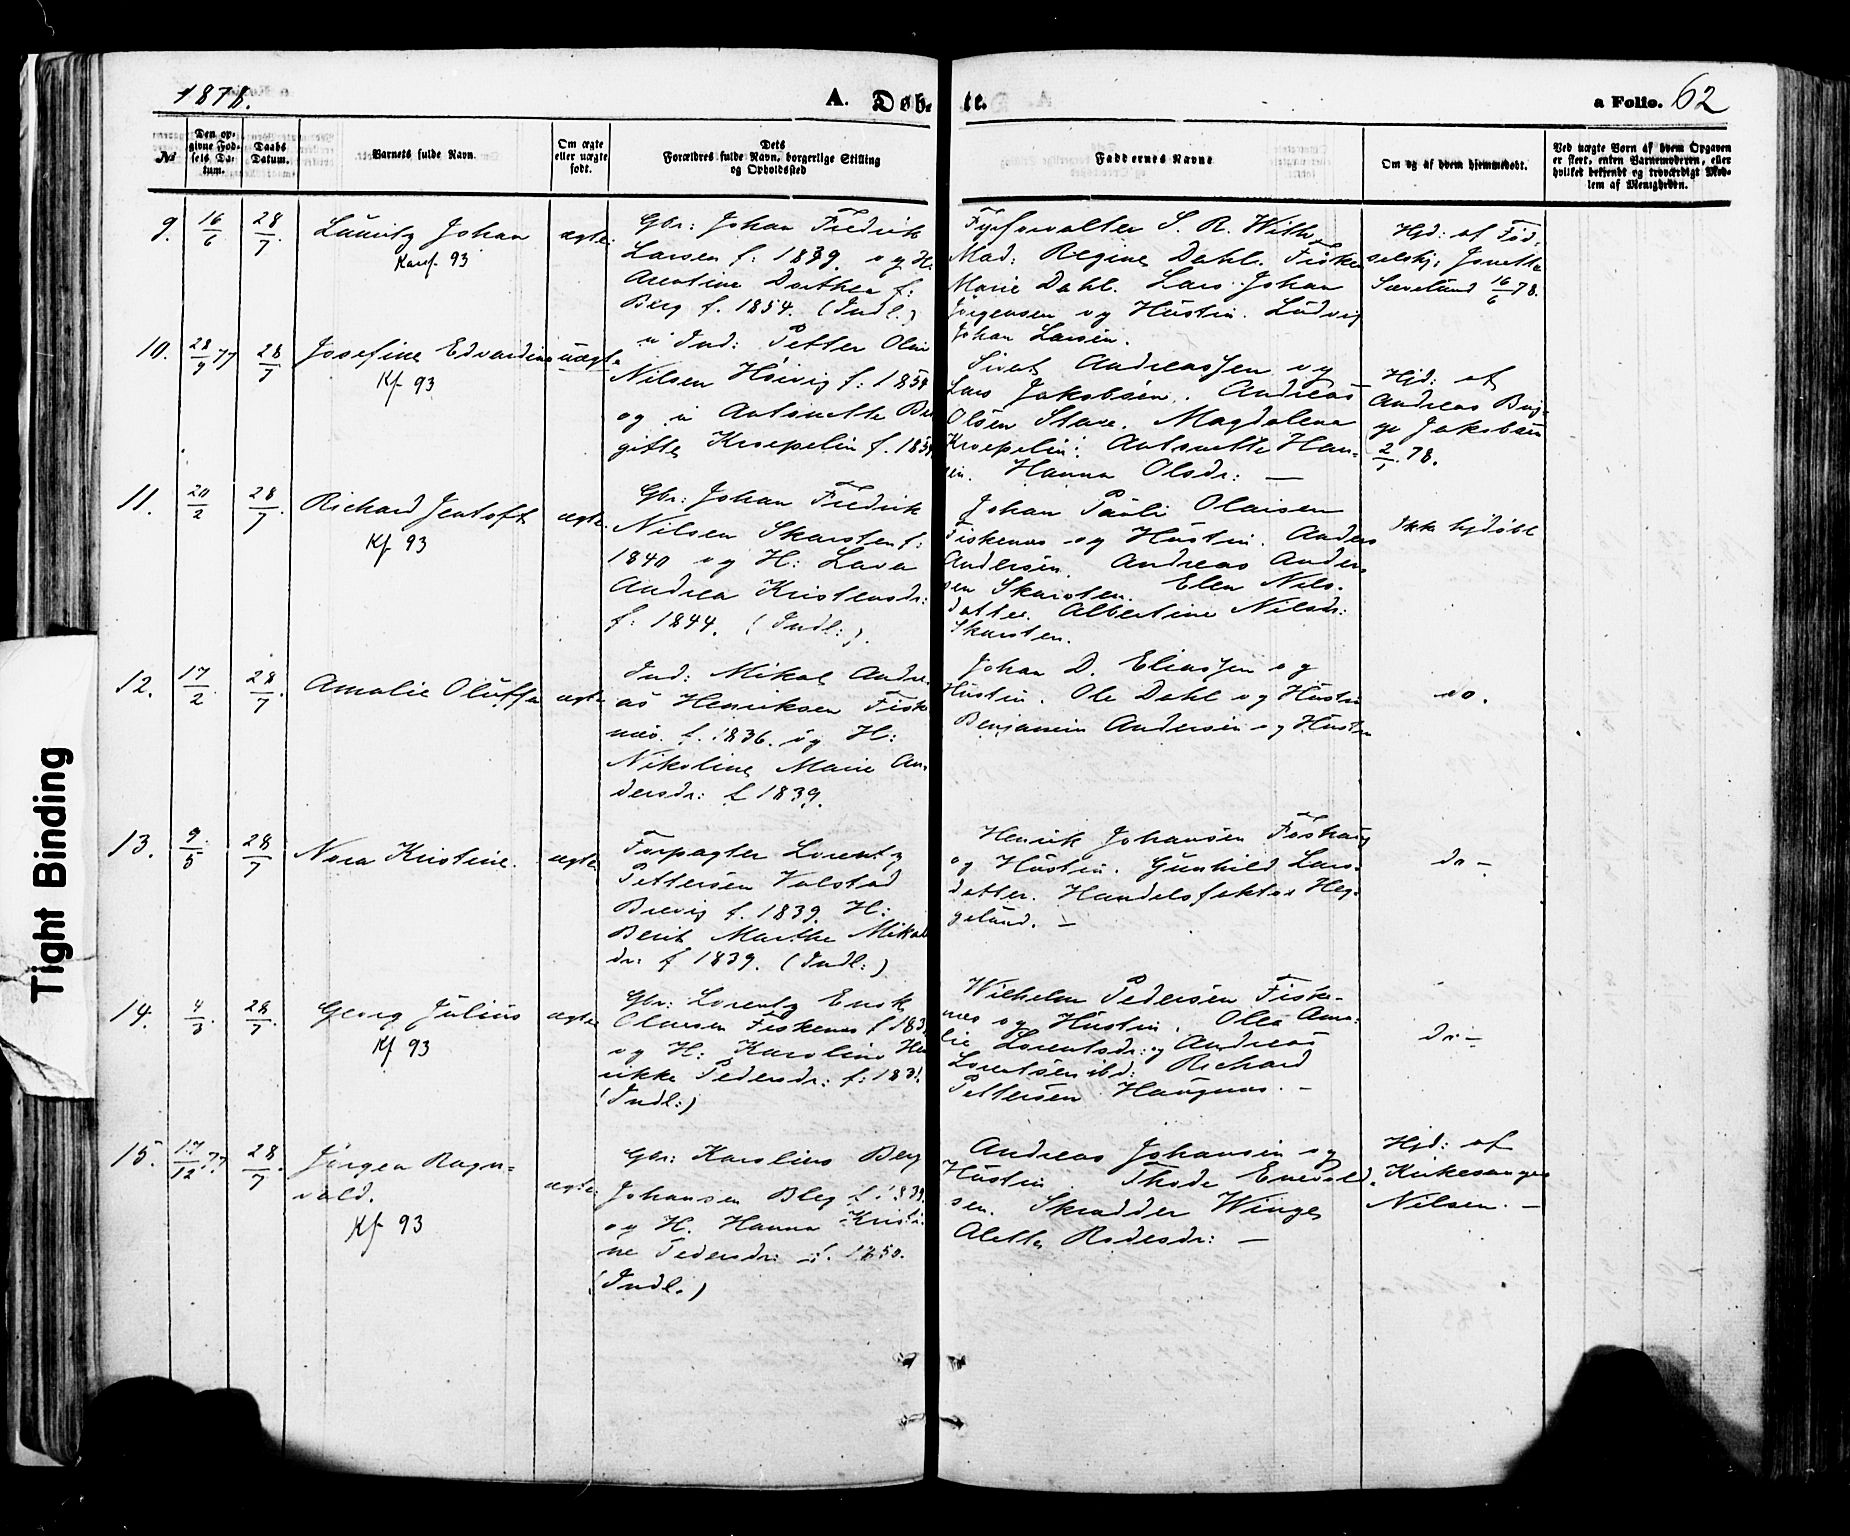 1878.
A. Døb-
te.
a Folio. 62
№
Den op-
givne Fød-
sels Da-
tum.
Daabs
Datum.
Barnets fulde Navn.
Om ægte
eller uægte
født.
Dets
Forældres fulde Navn, borgerlige Stilling
og Opholdssted
Faddernes Navne
Om og af hvem hjemmedøbt.
Ved uægte Børn af hvem Opgaven
er skeet, enten Barnemoderen, eller
hvilket bekjendt og troværdigt Med-
lem af Menigheden.
9.
16/6
28/7.
Lauritz Johan
Konf. 93
ægte:
Gbr: Johan Fredrik
Larsen f: 1839. og H:
Arentine Dorthea f:
Berg f. 1854. (Indl.)
Fyrforvalter S. R. With
Mad: Regine Dahl. Fisken
Marie Dahl. Lars Johan
Jörgensen og Hustru. Ludvig
Johan Larsen.
Hjd: af Föd-
selshj: Jonetta
Sævelund 16/6 78.
10.
28/9 77
28/7
Josefine Edvardine
Kf 93
uægte
u Ind: Petter Olai
Nilsen Höivig f: 1854
og u Antonette Bir
gitte Kroepelin f. 1854
Sivet Andreassen og
Lars Jakobsen. Andreas
Olsen Stave. Magdalena
Kroepelin. Antonette Han-
sen. Hanna Olsdr: —
Hjd: af
Andreas Buj-
ge Jakobsen
2/1. 78.
11.
20/2
28/7.
Richard Jentoft
Kf 93
ægte.
Gbr: Johan Fredrik
Nilsen Skarsten f:
1840 og H: Lava
Andrea Kristensdr:
f: 1844. (Indl:).
Johan Pauli Olaisen
Fiskenes og Hustru. Anders
Andersen. Andreas Anders
sen Skarsten. Elen Nils-
datter. Albertine Nilsdr:
Skarsten.
Ikke hjdöbt
12.
17/2.
28/7.
Amalie Oluffa
ægte
Ind: Mikal Andre
as Henriksen Fiske
næs. f. 1836. og H:
Nikoline Marie An-
dersdr: f 1839.
Johan D. Eliassen og
Hustru. Ole Dahl og Hustru
Benjamin Andersen og Hustru
do.
13.
9/5
28/7
Nora Kristine.
ægte
Forpagter Lorentz
Pettersen Valstad
Brevig f. 1839. H:
Berit Marthe Mikal
dr: f 1839. (Indl:)
Henrik Johansen Foshaug
og Hustru. Gunhild Lars-
datter. Handelsfaktor Heg-
gelund. —
do —
14.
4/3.
28/7.
Georg Julius
Kf 93
ægte
Gbr: Lorentz Enok
Olaesen Fiskenes f 183
og H: Karoline Hen
rikke Pedersdr: f: 183.
(Indl:)
Wilhelm Pedersen Fiske-
nes og Hustru. Olea Ama-
lie Lorentsdr: og Andreas
Lorentsen ibd: Richard
Pettersen Haugnes. —
do —
15.
17/12 77
28/7.
Jörgen Ragn-
vald.
Kf 93
ægte
Gbr: Karolius Berg
Johansen Bleg f. 1839.
og H. Hanna Kristi
ne Pedersdr: f. 1850.
(Indl.)
Andreas Johansen og
Hustru. Thode Enevold-
sen. Skrædder Winge
Aletta Rodesdr: —
Hjd: af
Kirkesanger
Nilsen. —
Tight Binding